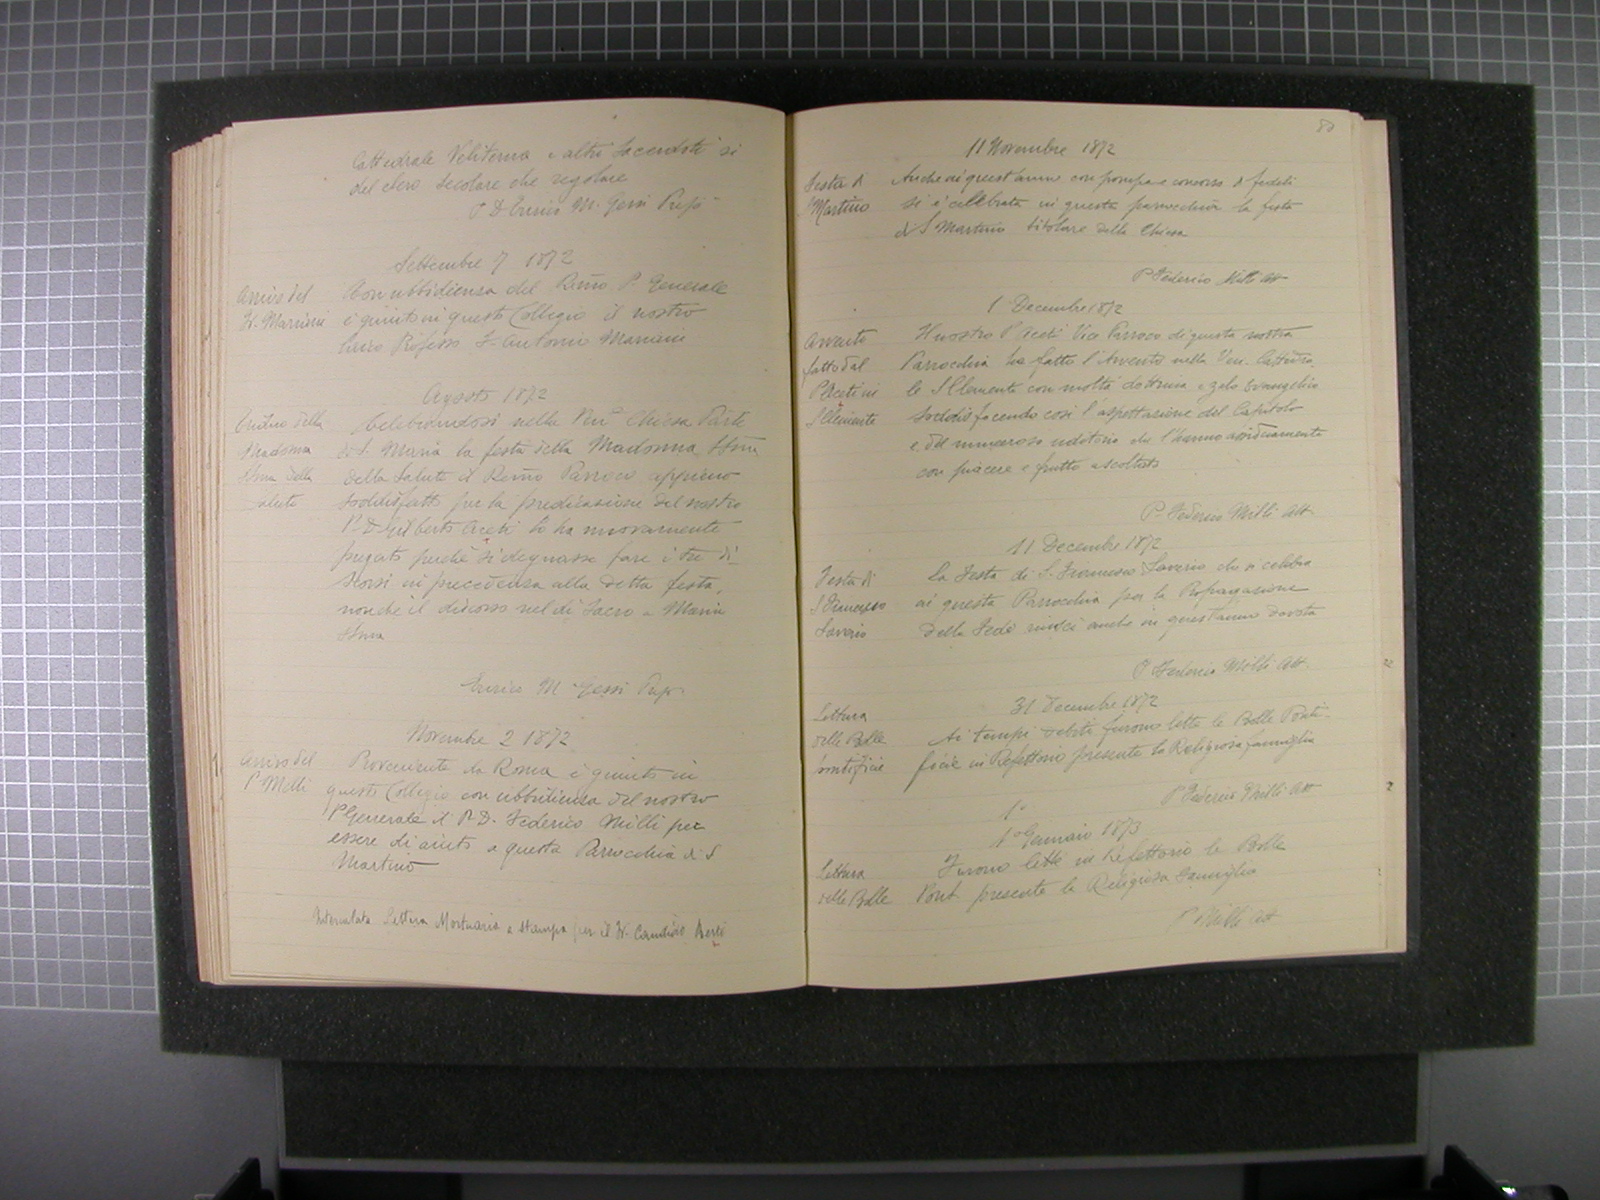 Cattedrale Veliterna e altri Sacerdoti si
del clero secolare che regolare
P. D. Enrico M. Gessi Prep.
Settembre 7 1872
Arrivo del
Fr. Marinii
Con ubbidienza del Rmo P. Generale
è giunto in questo Collegio il nostro
Laico Professo Fr. Antonio Marinii
Agosto 1872
della
Madonna
SSma della
Salute
Celebrandosi nella Ven. Chiesa Parle
di S. Maria la festa della Madonna SSma
della Salute il Rmo Parroco appieno
soddisfatto per la predicazione del nostro
P. D. Gilberto Aceti lo ha nuovamente
pregato perchè si degnasse fare i tre di-
scorsi in precedenza alla detta festa,
nonchè il discorso nel dì sacro a Maria
SSma
Enrico M. Gessi Prep.
Novembre 2 1872
Arrivo del
P. Milli
Proveniente da Roma è giunto in
questo Collegio con ubbidienza del nostro
P. Generale il P. D. Federico Milli per
essere di aiuto a questa Parrocchia di S.
Martino
Intercalata Lettera Mortuaria a stampa per il Fr.
80
11 Novembre 1872
Festa di
S. Martino
Anche in quest'anno con pompa e concorso di fedeli
si è celebrata in questa parrocchia la festa
di S. Martino titolare della Chiesa
P. Federico Milli Att.
1 Decembre 1872
Avvento
fatto dal
P. Aceti in
S. Clemente
Il nostro P. Aceti Vice Parroco di questa nostra
Parrocchia ha fatto l'Avvento nella Ven. Cattedra-
le S. Clemente con molta dottrina e zelo Evangelico
soddisfacendo così l'aspettazione del Capitolo
e del numeroso uditorio che l'hanno assiduamente
con piacere e frutto ascoltato
P. Federico Milli Att.
11 Decembre 1872
Festa di
S. Francesco
Saverio
La Festa di S. Francesco Saverio che si celebra
in questa Parrocchia per la Propagazione
della Fede riuscì anche in quest'anno devota
P. Federico Milli Att.
31 Decembre 1872
Lettura
delle Bolle
pontificie
Ai tempi debiti furono lette le Bolle Ponti-
ficie in Refettorio presente la Religiosa famiglia
P. Federico Milli Att.
1°
1° Gennaio 1873
Lettura
delle Bolle
Furono lette in Refettorio le Bolle
Pont. presente la Religiosa famiglia
P. Milli Att.